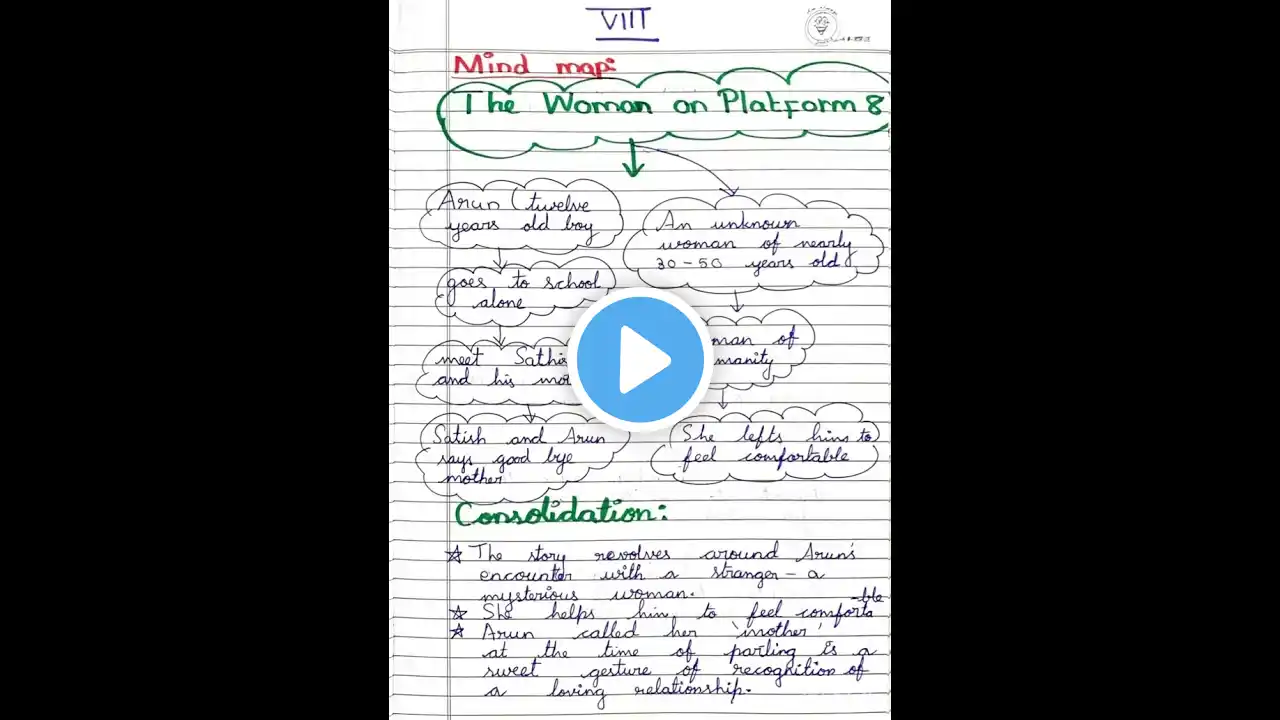 VIII
Mind map:
The Woman on Platform 8
Arun (twelve
years old boy
goes to school
alone
meet
and his
Satish and Arun
says good bye
mother
An unknown
woman of nearly
30-50 years old
of
She lefts him to
feel comfortable
Consolidation:
☆ The story revolves around Arun's
encounter with a stranger - a
mysterious woman.
☆ She helps him to feel comforta
-ble
☆ Arun called her 'mother'
at the time of parting is a
sweet gesture of recognition of
a loving relationship.